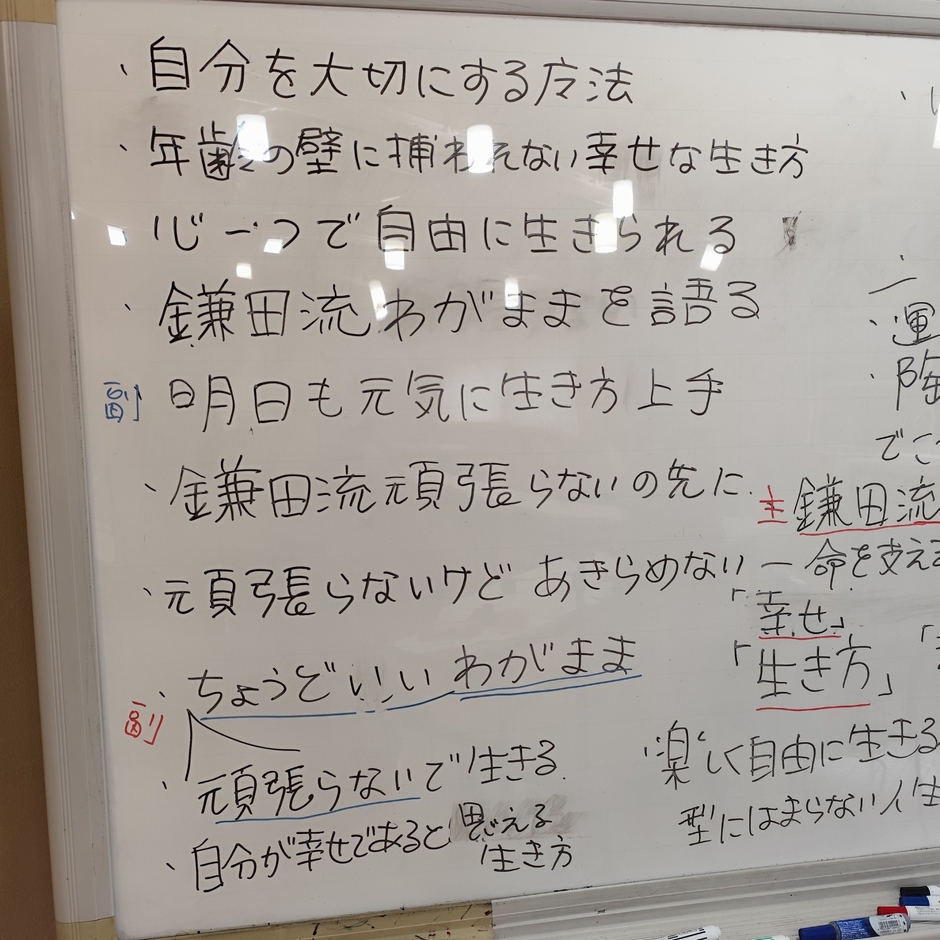 ・自分を大切にする方法
・年齢の壁に捕われない幸せな生き方
心一つで自由に生きられる
・鎌田流わがままを語る
副 明日も元気に生き方上手
・鎌田流頑張らないの先に
・頑張らないけど あきらめない
副 ・ちょうどいい わがまま
・頑張らないで生きる
・自分が幸せであると思える
生き方
・運
・陶
でこ
主 鎌田流
一命を支え
「幸せ」
「生き方」
・楽しく自由に生きる
型にはまらない人生